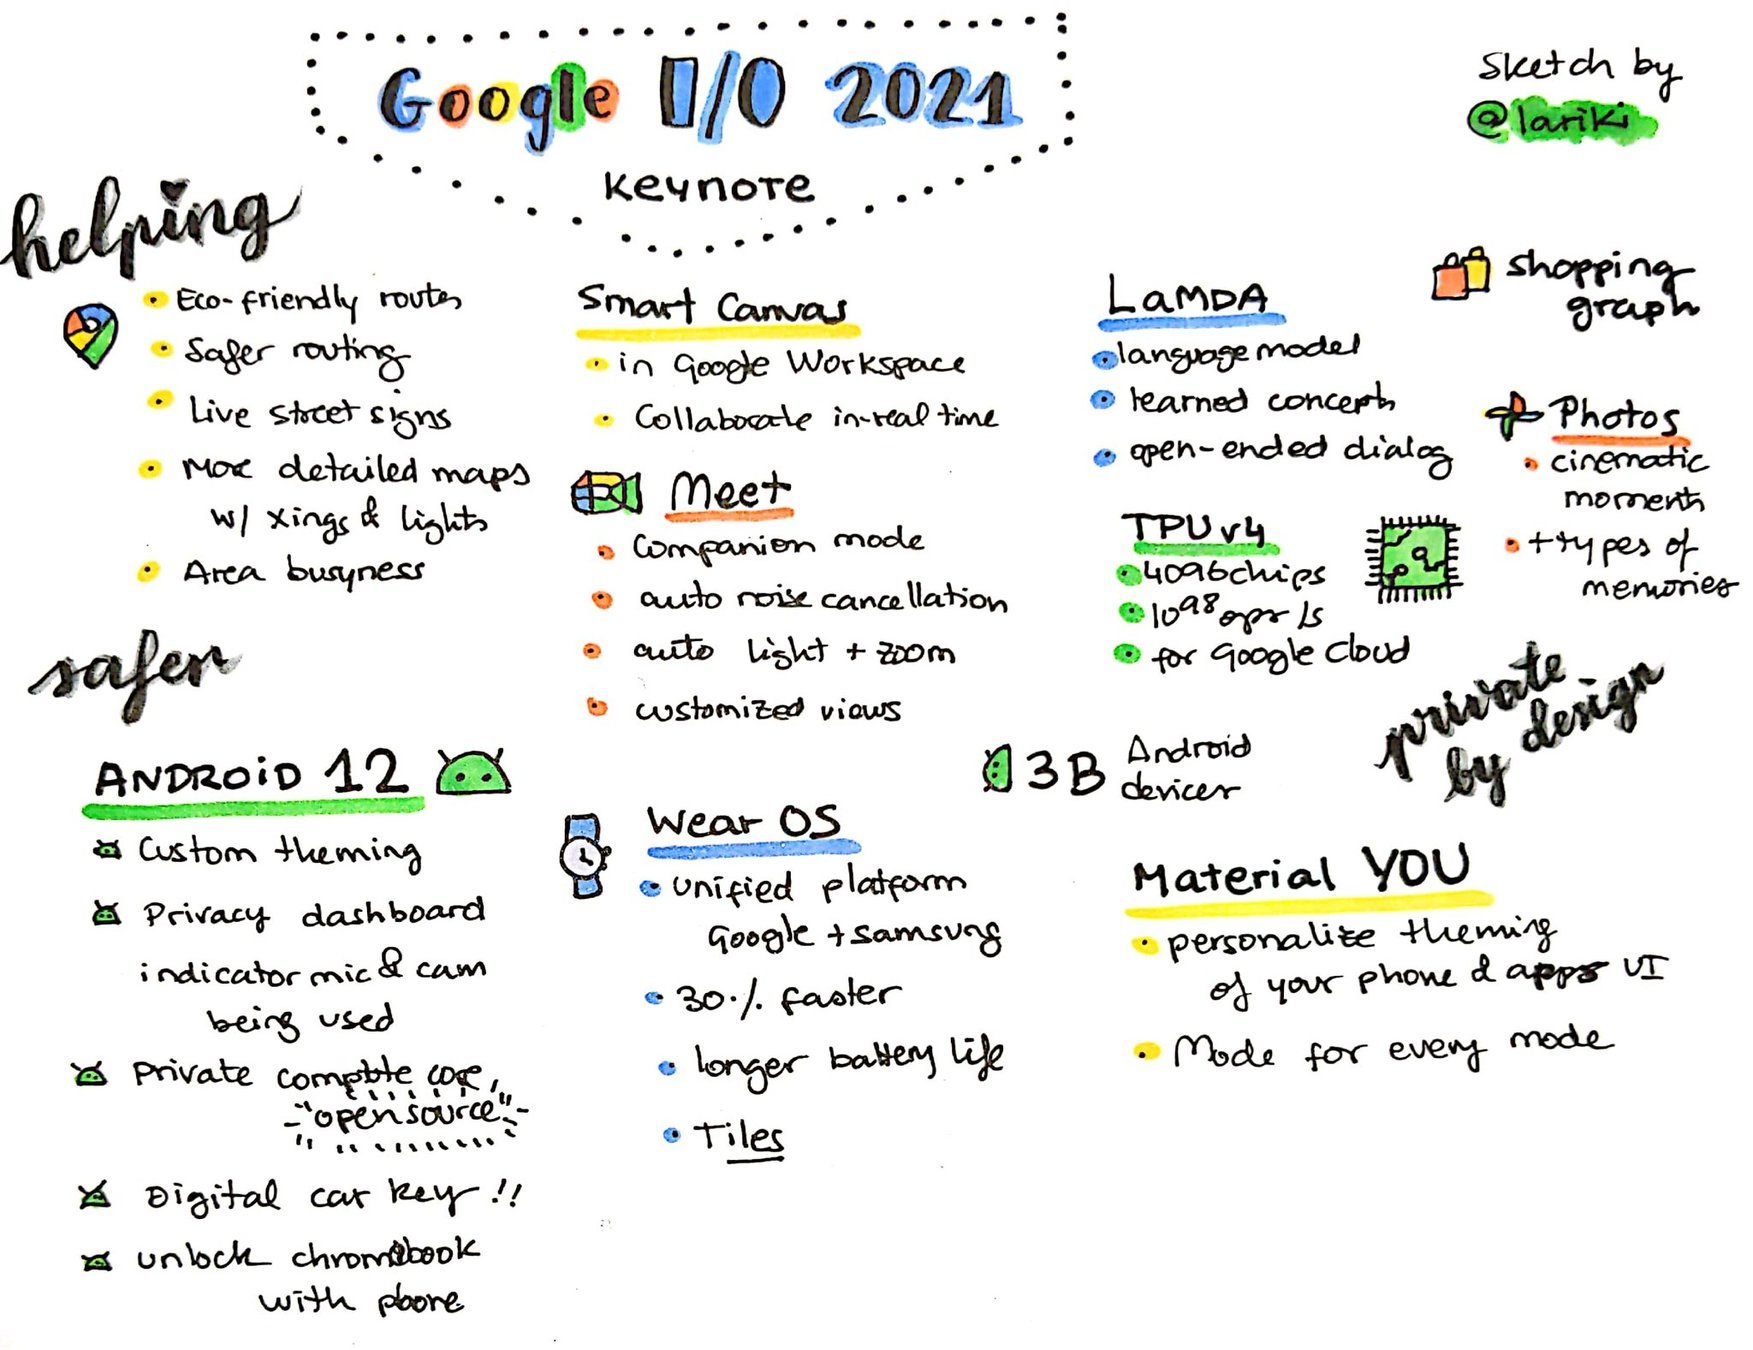 Google I/O 2021
Keynote
Sketch by
@lariki
helping
Eco-friendly routes
Safer routing
Live street signs
More detailed maps
w/ xings & lights
Area busyness
Smart Canvas
in Google Workspace
Collaborate in-real time
Meet
Companion mode
auto noise cancellation
auto light + zoom
customized views
LaMDA
language model
learned concepts
open-ended dialog
TPU v4
4096 chips
10^98 ops/s
for Google Cloud
Shopping
graph
Photos
cinematic
moments
+types of
memories
safer
private
by design
ANDROID 12
Custom theming
Privacy dashboard
indicator mic & cam
being used
Private compute core,
"open source"
Digital car key!!
unlock chromebook
with phone
Wear OS
unified platform
Google + Samsung
30% faster
longer battery life
Tiles
3B Android
devices
Material YOU
personalize theming
of your phone & apps UI
Mode for every mode